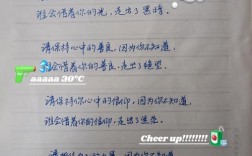 谁会借着你的光，走出了黑暗。
请保持心中的善良，因为你不知道，
谁会借着你的善良，走出了绝望。
7
aaaaa 30°C
请保持你心中的信仰，因为你不知道，
谁会借着你的信仰，走出了
Cheer up!!!!!!!!
因为你不知道